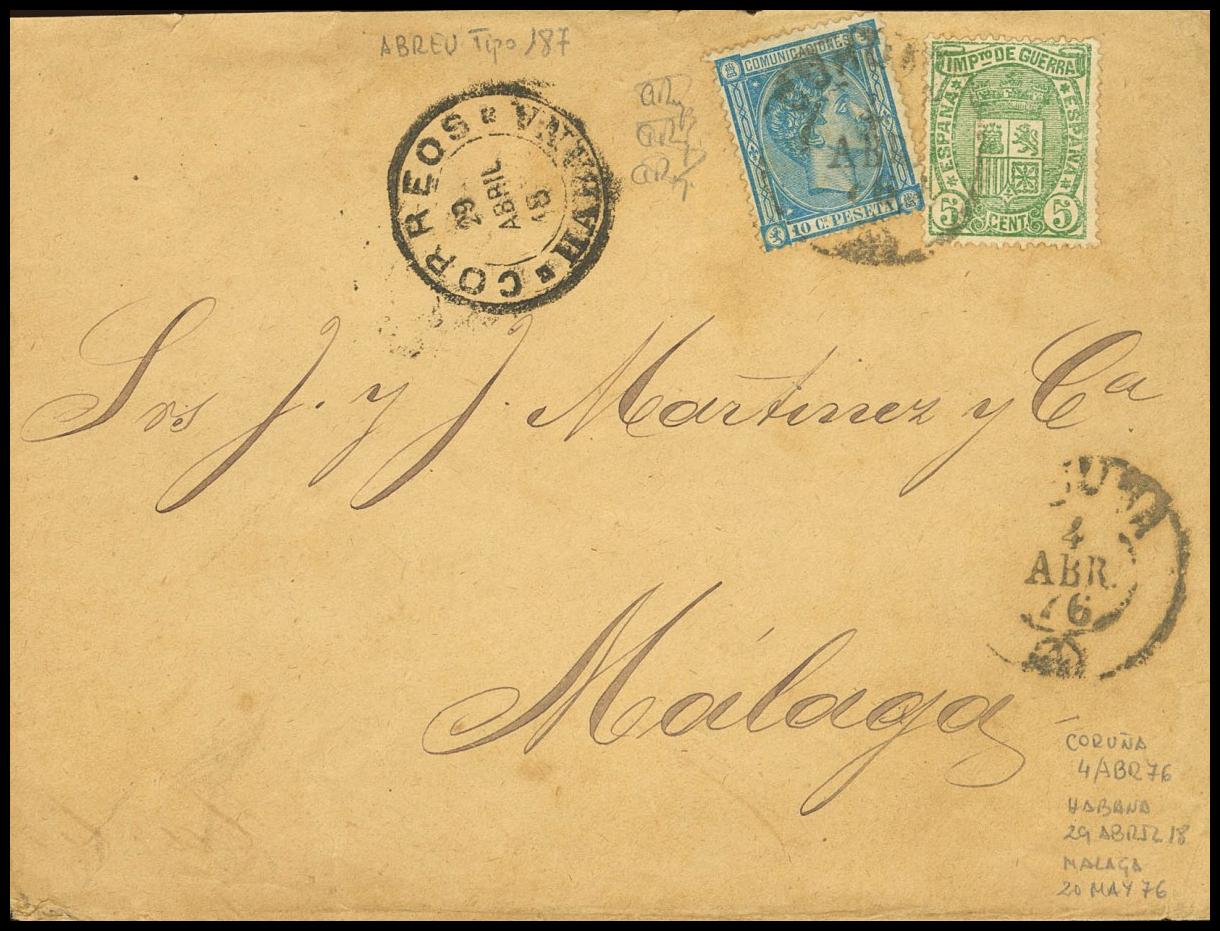 ABREU Tipo 187
CORREOS HABANA
29
ABRIL
18
COMUNICACIONES
10 C. PESETA
AB
IMPTO DE GUERRA
ESPAÑA
ESPAÑA
5 CENT. 5
Srs J. y J. Martinez y Ca
4
ABR.
76
Málaga
CORUÑA
4/ABR 76
HABANA
29 ABRIL 18
MALAGA
20 MAY 76